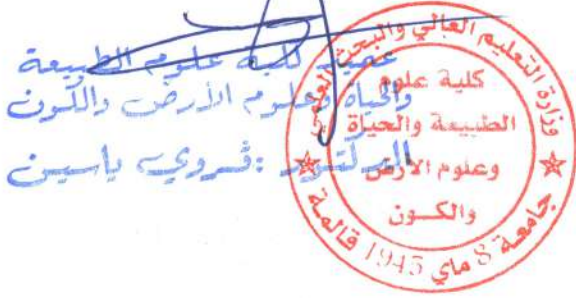 عميد كلية علوم الطبيعة
والحياة وعلوم الأرض والكون
الدكتور : ڤروي ياسين
وزارة التعليم العالي والبحث العلمي
كلية علوم
الطبيعة والحياة
وعلوم الأرض
والكـون
جامعة 8 ماي 1945 قالمة